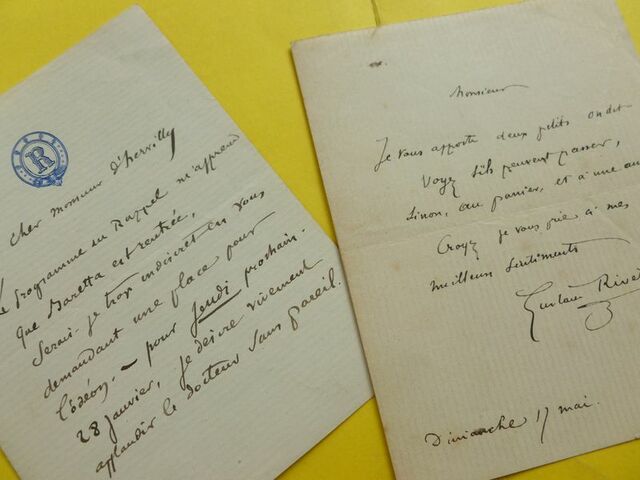 R
Cher Monsieur d'Hervilly
Le Programme du Rappel m'apprend
que Baretta est rentrée,
Serais-je trop indiscret en vous
demandant une place pour
l'odéon, — pour Jeudi prochain.
28 Janvier, je désire vivement
applaudir le docteur Sans pareil.
Monsieur
Je vous apporte deux petits on dit
Voyez s'ils peuvent passer,
Sinon, au panier, et à une au
Croyez je vous prie à mes
meilleurs sentiments
Gustave Rivet
Dimanche 17 mai.